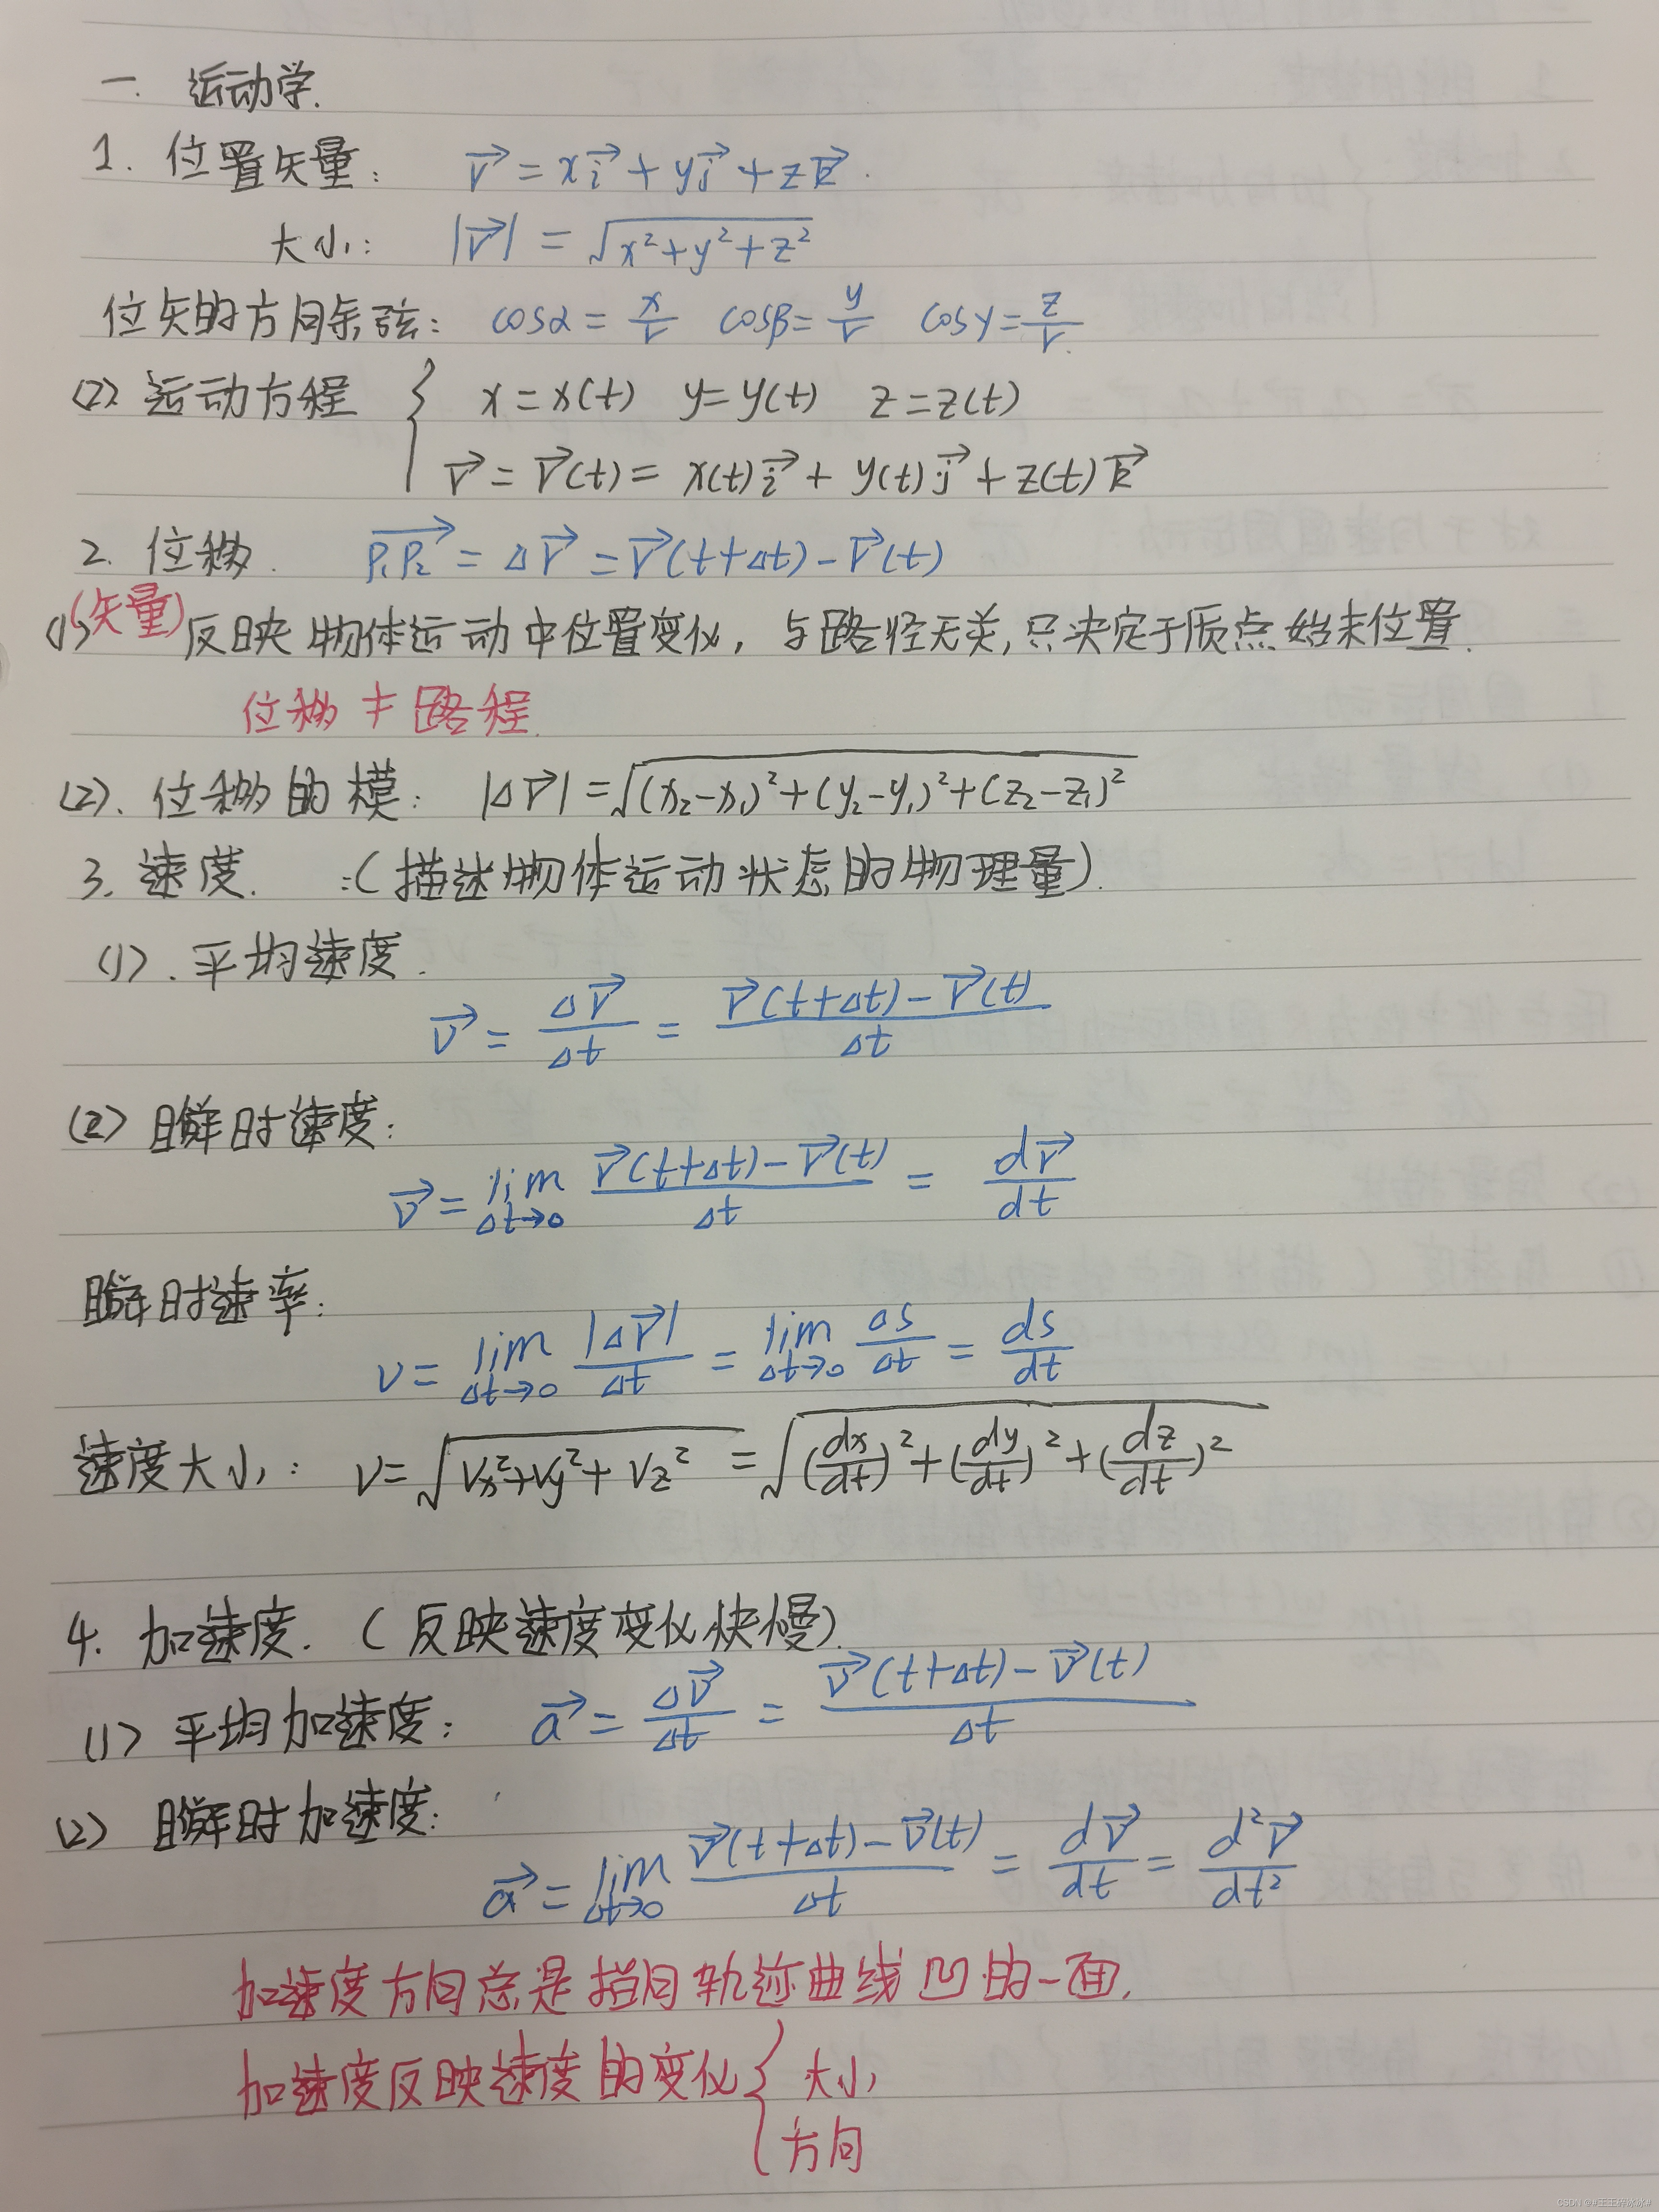 一. 运动学.
1. 位置矢量: r⃗ = xi⃗ + yj⃗ + zk⃗.
大小: |r⃗| = √(x²+y²+z²)
位矢的方向余弦: cosα = x/r cosβ = y/r cosγ = z/r
(2) 运动方程 { x = x(t) y = y(t) z = z(t)
r⃗ = r⃗(t) = x(t)i⃗ + y(t)j⃗ + z(t)k⃗
2. 位移. P₁P₂⃗ = Δr⃗ = r⃗(t+Δt) - r⃗(t)
(1) (矢量) 反映物体运动中位置变化, 与路径无关, 只决定于质点始末位置.
位移 ≠ 路程.
(2). 位移的模: |Δr⃗| = √((x₂-x₁)²+(y₂-y₁)²+(z₂-z₁)²)
3. 速度. :(描述物体运动状态的物理量).
(1). 平均速度.
v⃗ = Δr⃗/Δt = (r⃗(t+Δt) - r⃗(t))/Δt
(2) 瞬时速度:
v⃗ = lim Δt→0 (r⃗(t+Δt) - r⃗(t))/Δt = dr⃗/dt
瞬时速率:
v = lim Δt→0 |Δr⃗|/Δt = lim Δt→0 Δs/Δt = ds/dt
速度大小: v = √(vx²+vy²+vz²) = √((dx/dt)²+(dy/dt)²+(dz/dt)²)
4. 加速度. (反映速度变化快慢).
(1) 平均加速度: a⃗ = Δv⃗/Δt = (v⃗(t+Δt) - v⃗(t))/Δt
(2) 瞬时加速度:
a⃗ = lim Δt→0 (v⃗(t+Δt) - v⃗(t))/Δt = dv⃗/dt = d²r⃗/dt²
加速度方向总是指向轨迹曲线凹的一面.
加速度反映速度的变化 { 大小
方向